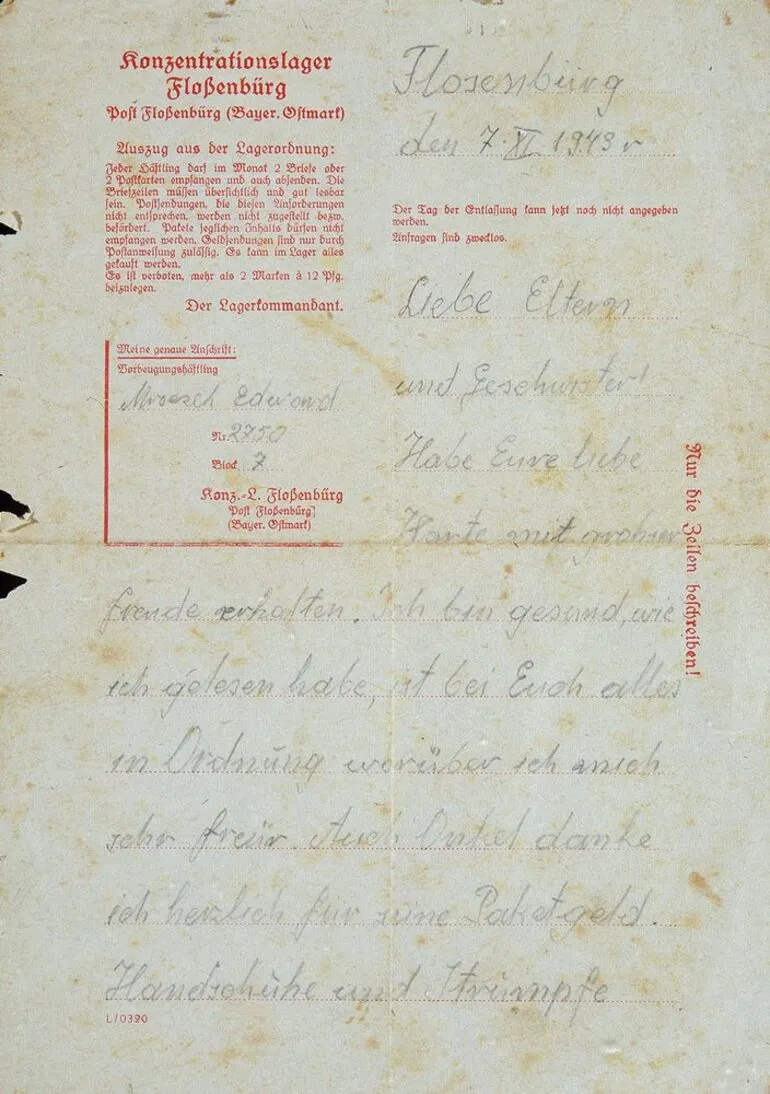 Konzentrationslager
Floßenbürg
Post Floßenbürg (Bayer. Ostmark)
Auszug aus der Lagerordnung:
Jeder Häftling darf im Monat 2 Briefe oder
2 Postkarten empfangen und auch absenden. Die
Briefzeilen müssen übersichtlich und gut lesbar
sein. Postsendungen, die diesen Anforderungen
nicht entsprechen, werden nicht zugestellt bezw.
befördert. Pakete jeglichen Inhalts dürfen nicht
empfangen werden. Geldsendungen sind nur durch
Postanweisung zulässig. Es kann im Lager alles
gekauft werden.
Es ist verboten, mehr als 2 Marken à 12 Pfg.
beizulegen.
Der Lagerkommandant.
Meine genaue Anschrift:
Vorbeugungshäftling
Edward
Nr. 2750
Block 7
Konz.-L. Floßenbürg
Post Floßenbürg
(Bayer. Ostmark)
Flosenbürg
den 7. XI 1943 r
Der Tag der Entlassung kann jetzt noch nicht angegeben
werden.
Anfragen sind zwecklos.
Liebe Eltern
und Geschwister!
Habe Eure liebe
Karte mit großer
freude erhalten. Ich bin gesund, wie
ich gelesen habe, ist bei Euch alles
in Ordnung worüber ich mich
sehr freür. Auch Onkel danke
ich herzlich für seine Paketgeld.
Handschühe und Strümpfe
Nur die Zeilen beschreiben!
L/0320